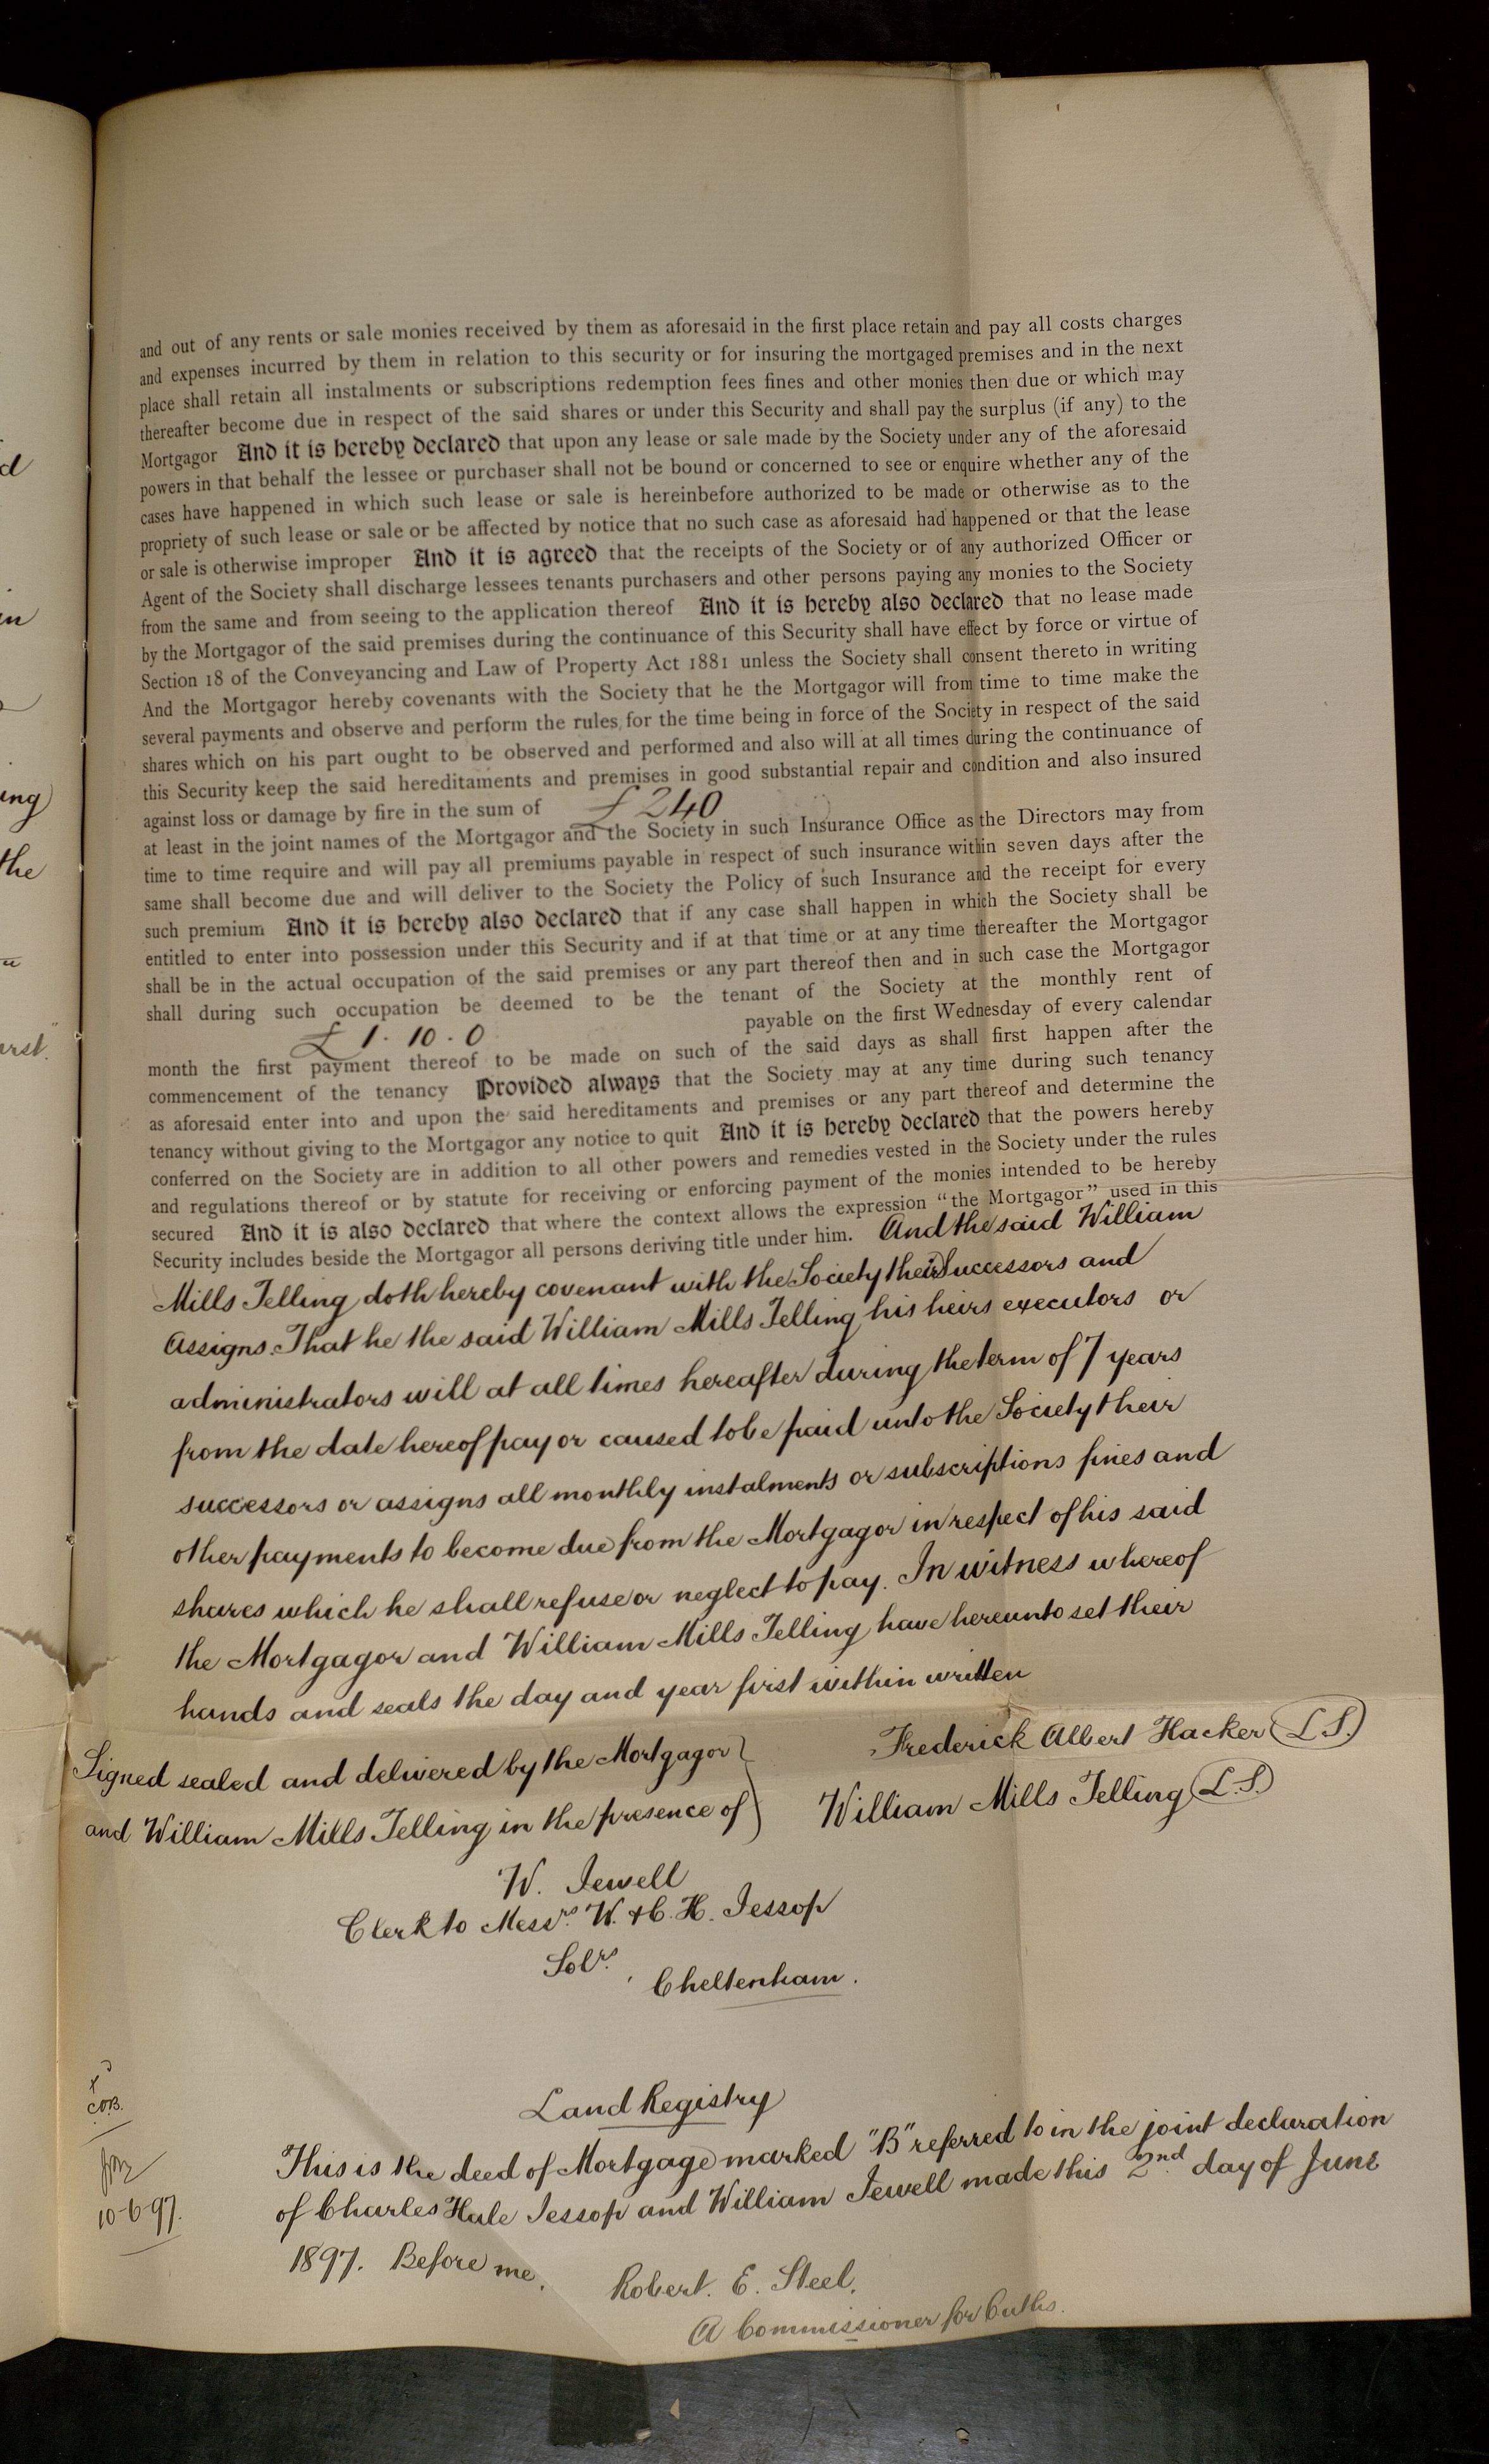 and out of any rents or sale monies received by them as aforesaid in the first place retain and pay all costs charges
and expenses incurred by them in relation to this security or for insuring the mortgaged premises and in the next
place shall retain all instalments or subscriptions redemption fees fines and other monies then due or which may
thereafter become due in respect of the said shares or under this Security and shall pay the surplus (if any) to the
Mortgagor And it is hereby declared that upon any lease or sale made by the Society under any of the aforesaid
powers in that behalf the lessee or purchaser shall not be bound or concerned to see or enquire whether any of the
cases have happened in which such lease or sale is hereinbefore authorized to be made or otherwise as to the
propriety of such lease or sale or be affected by notice that no such case as aforesaid had happened or that the lease
or sale is otherwise improper And it is agreed that the receipts of the Society or of any authorized Officer or
Agent of the Society shall discharge lessees tenants purchasers and other persons paying any monies to the Society
from the same and from seeing to the application thereof And it is hereby also declared that no lease made
by the Mortgagor of the said premises during the continuance of this Security shall have effect by force or virtue of
Section 18 of the Conveyancing and Law of Property Act 1881 unless the Society shall consent thereto in writing
And the Mortgagor hereby covenants with the Society that he the Mortgagor will from time to time make the
several payments and observe and perform the rules for the time being in force of the Society in respect of the said
shares which on his part ought to be observed and performed and also will at all times during the continuance of
this Security keep the said hereditaments and premises in good substantial repair and condition and also insured
against loss or damage by fire in the sum of £240
at least in the joint names of the Mortgagor and the Society in such Insurance Office as the Directors may from
time to time require and will pay all premiums payable in respect of such insurance within seven days after the
same shall become due and will deliver to the Society the Policy of such Insurance and the receipt for every
such premium And it is hereby also declared that if any case shall happen in which the Society shall be
entitled to enter into possession under this Security and if at that time or at any time thereafter the Mortgagor
shall be in the actual occupation of the said premises or any part thereof then and in such case the Mortgagor
shall during such occupation be deemed to be the tenant of the Society at the monthly rent of
£1.10.0 payable on the first Wednesday of every calendar
month the first payment thereof to be made on such of the said days as shall first happen after the
commencement of the tenancy Provided always that the Society may at any time during such tenancy
as aforesaid enter into and upon the said hereditaments and premises or any part thereof and determine the
tenancy without giving to the Mortgagor any notice to quit And it is hereby declared that the powers hereby
conferred on the Society are in addition to all other powers and remedies vested in the Society under the rules
and regulations thereof or by statute for receiving or enforcing payment of the monies intended to be hereby
secured And it is also declared that where the context allows the expression “the Mortgagor” used in this
Security includes beside the Mortgagor all persons deriving title under him. And the said William
Mills Telling doth hereby covenant with the Society their Successors and
Assigns. That he the said William Mills Telling his heirs executors or
administrators will at all times hereafter during the term of 7 years
from the date hereof pay or caused to be paid unto the Society their
successors or assigns all monthly instalments or subscriptions fines and
other payments to become due from the Mortgagor in respect of his said
shares which he shall refuse or neglect to pay. In witness whereof
the Mortgagor and William Mills Telling have hereunto set their
hands and seals the day and year first within written
Signed sealed and delivered by the Mortgagor
and William Mills Telling in the presence of
Frederick Albert Hacker L.S.
William Mills Telling L.S.
W. Jewell
Clerk to Messrs. W. & C. H. Jessop
Solrs.
Cheltenham.
Land Registry
This is the deed of Mortgage marked "B" referred to in the joint declaration
of Charles Hale Jessop and William Jewell made this 2nd day of June
1897. Before me,
Robert. E. Steel.
A Commissioner for Oaths.
10-6-97.
the